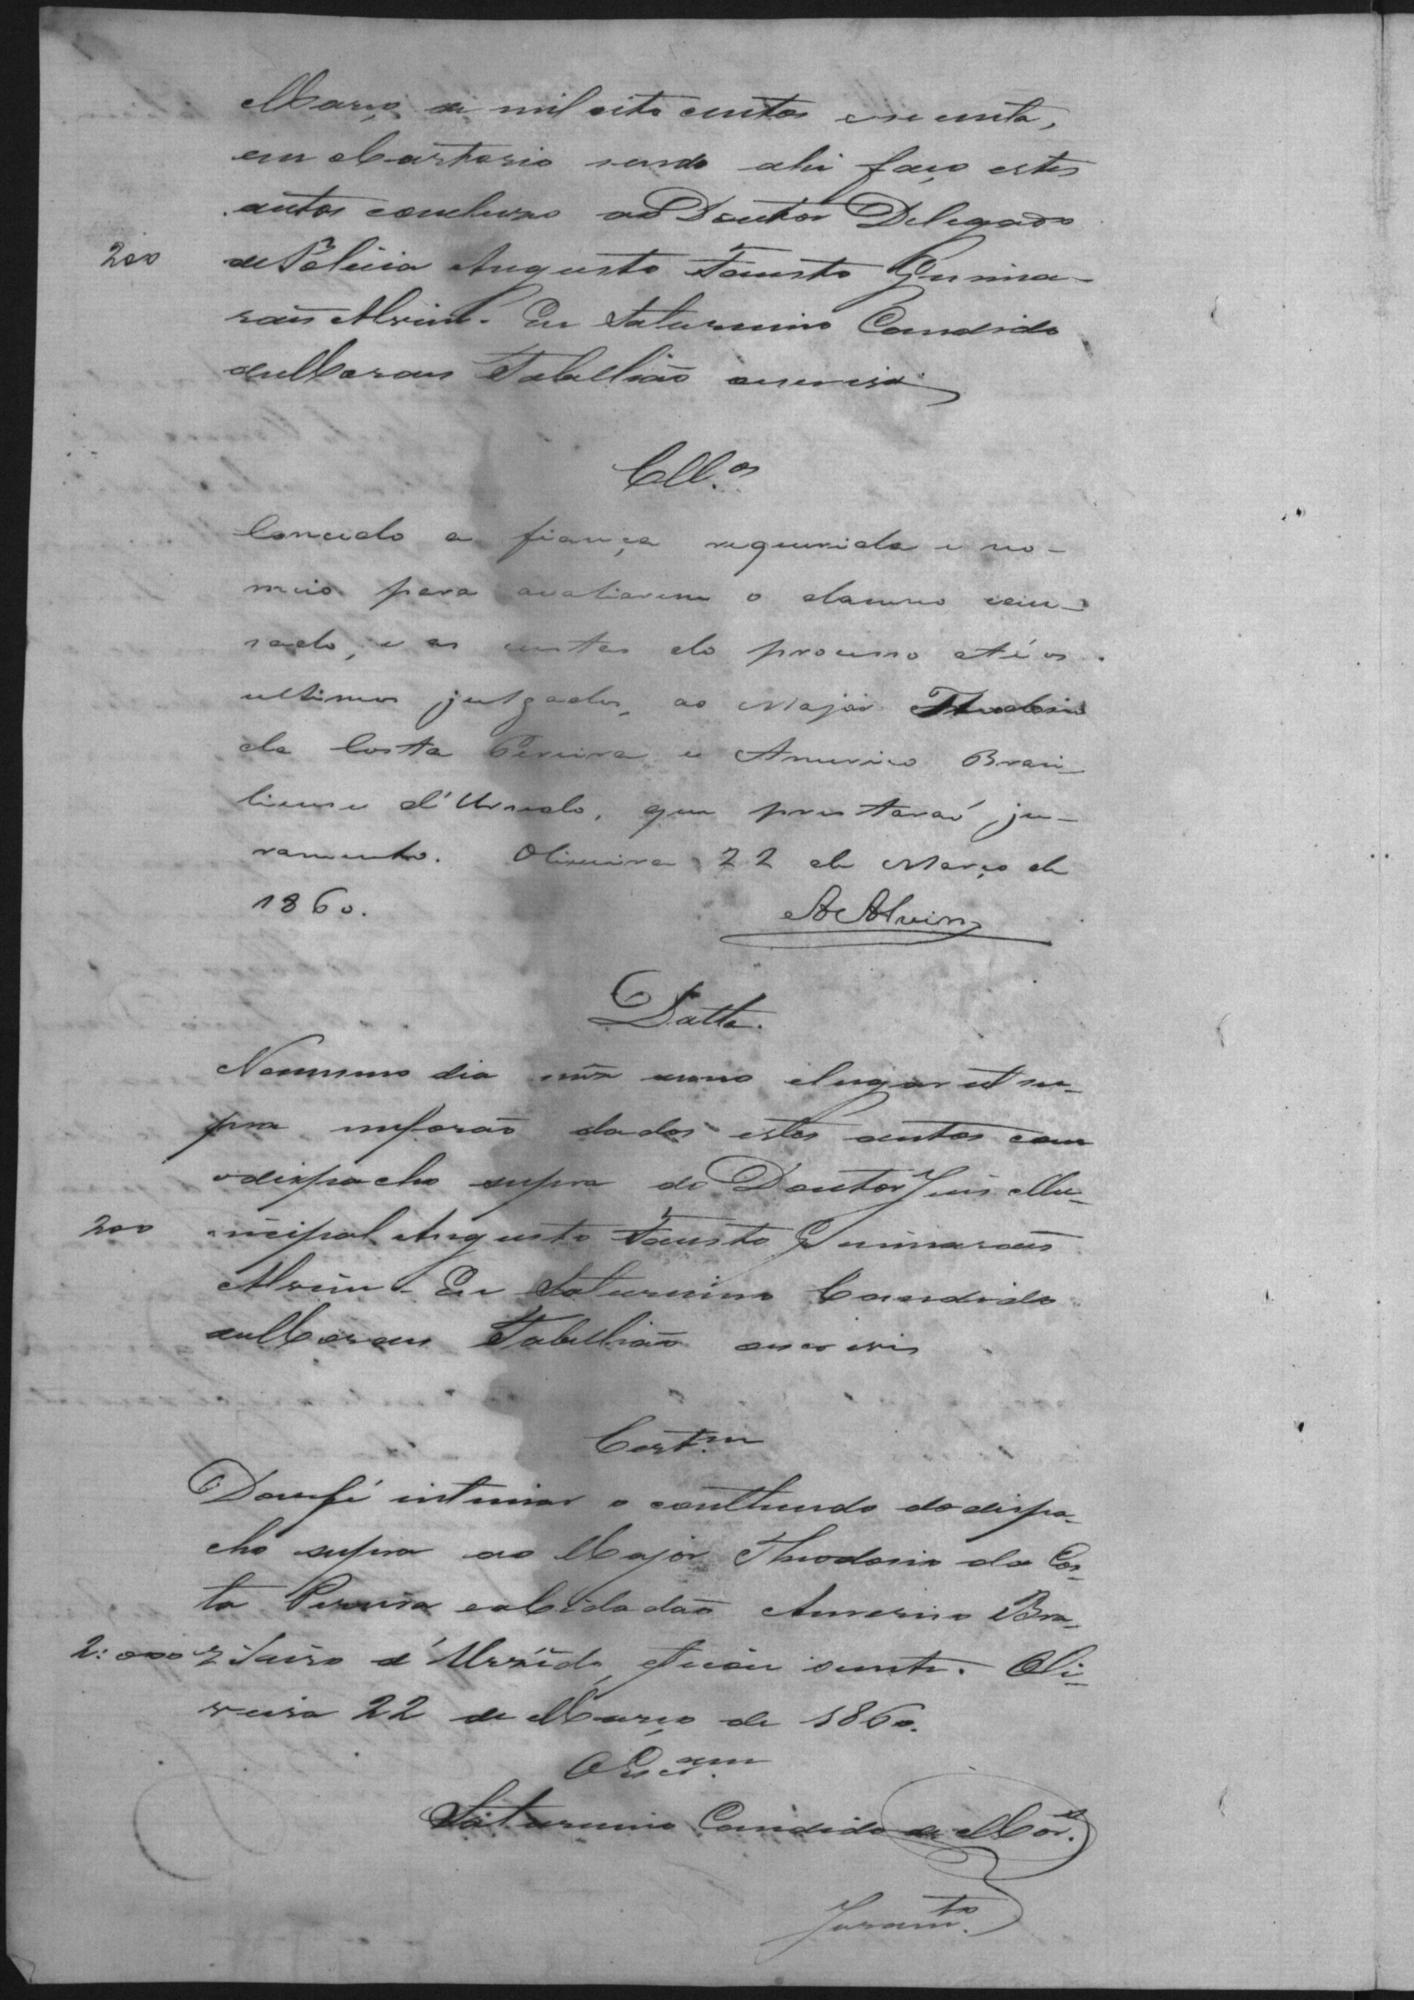 Março de mil oito centos e secenta,
em Cartorio sendo ahi faço estes
autos concluzo ao Doutor Delegado
200 de Policia Augusto Fausto Guima-
rães Alvim. Eu Saturnino Candido
de Moraes Tabellião o escrevi
Cll.os
Concedo a fiança requerida e no-
meio para avaliarem o damno cau-
sado, e as custas do processo até os
ultimos julgados, ao Major Theodosio
da Costa Pereira e Americo Brasi-
liense d'Urzedo, que prestaraõ ju-
ramento. Oliveira 22 de Março de
1860. A Alvim
Datta.
No mesmo dia mês anno e lugar ut su-
pra me foraõ dados estes autos com
o dispacho supra do Doutor Juis Mu-
200 nicipal Augusto Fausto Guimarães
Alvim. Eu Saturnino Candido
de Moraes Tabellião o escrevi
Cert.m
Dou fé intimar o conthendo do dispa-
cho supra ao Major Theodosio da Cos-
ta Pereira e ao Cidadão Americo Bra-
2:000 d'Urzêdo, ficaõ siente. Oli-
veira 22 de Março de 1860.
O Escr.am
Saturnino Candido de Mor.s
Juram.to